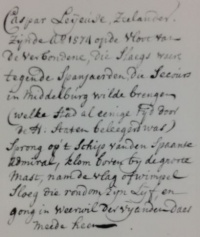 Caspar Leijense, Zielander,
Zijnde A° 1574 op de Vloot van
de Verbondene, die Slaegs was
tegende Spanjaerden, die Secours
in Middelburg wilde brengen
(welke Stad al eenige Tyd door
de H. Staten belegert was)
Sprong op t Schip vanden Spaanse
Admiral, klom boven by de groote
Mast, nam de vlag of wimpel
Sloeg die rondom zyn Lyf, en
gong in weerwil der vyanden daar
meede heen